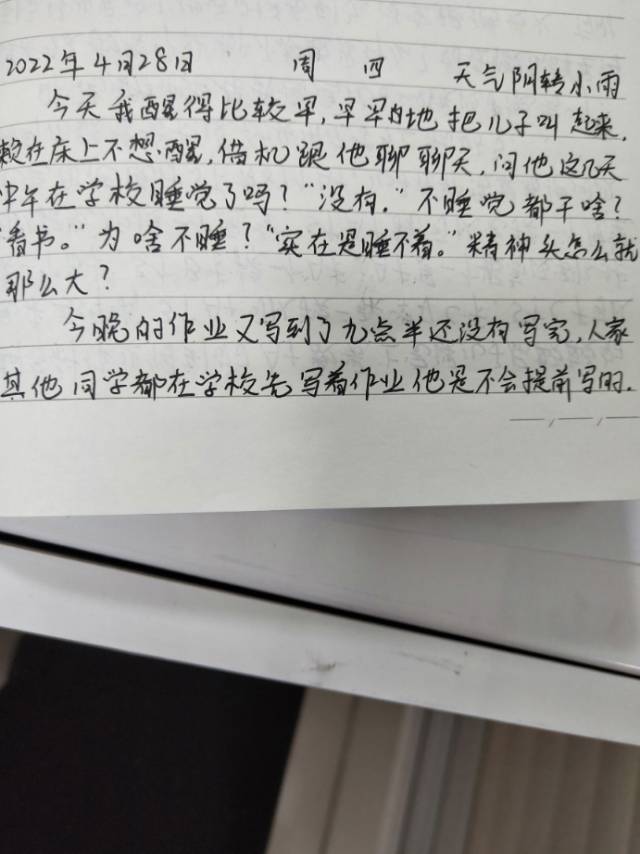 2022年4月28日 周四 天气阴转小雨
今天我醒得比较早,早早的地把儿子叫起来,
赖在床上不想醒,借机跟他聊聊天,问他这几天
中午在学校睡觉了吗?"没有."不睡觉都干啥?
"看书。"为啥不睡?"实在是睡不着。"精神头怎么就
那么大?
今晚的作业又写到了九点半还没有写完,人家
其他同学都在学校先写着作业他是不会提前写的.